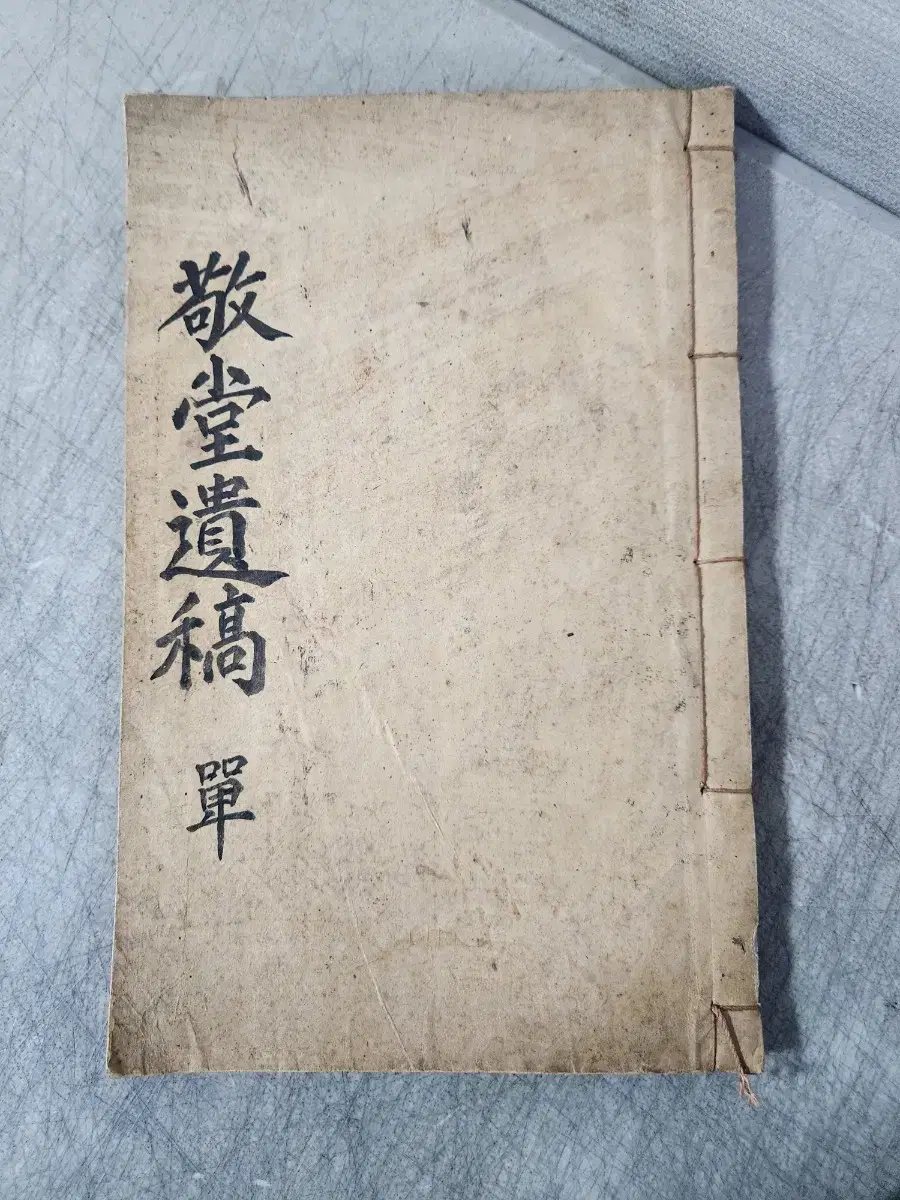 敬堂遺稿 單